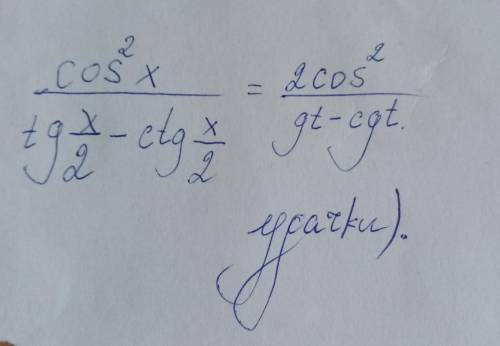 cos² x / (tg x/2 - ctg x/2) = 2cos² / (gt - cgt.
удачки).